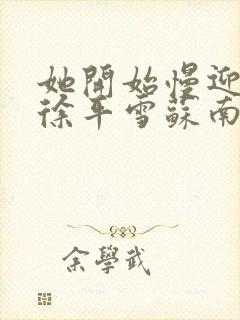 她開始慢迎
徐年雪蘇南
余學武